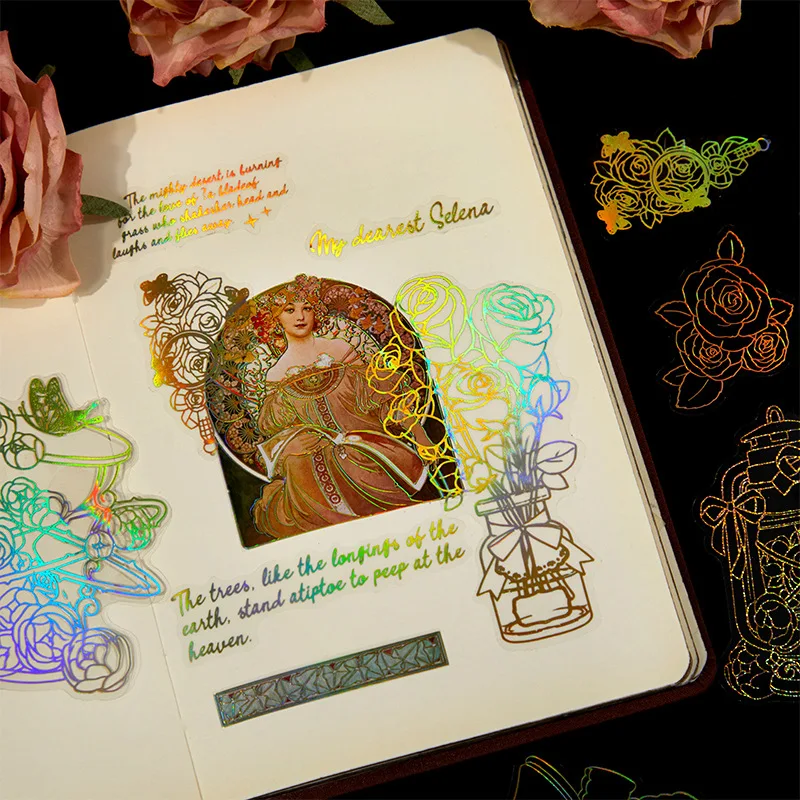 The mighty desert is burning
for the love of Ta bladeof
grass who shakesher head and
laughs and flies away.
My dearest Selena
The trees, like the longings of the
earth, stand atiptoe to peep at the
heaven.